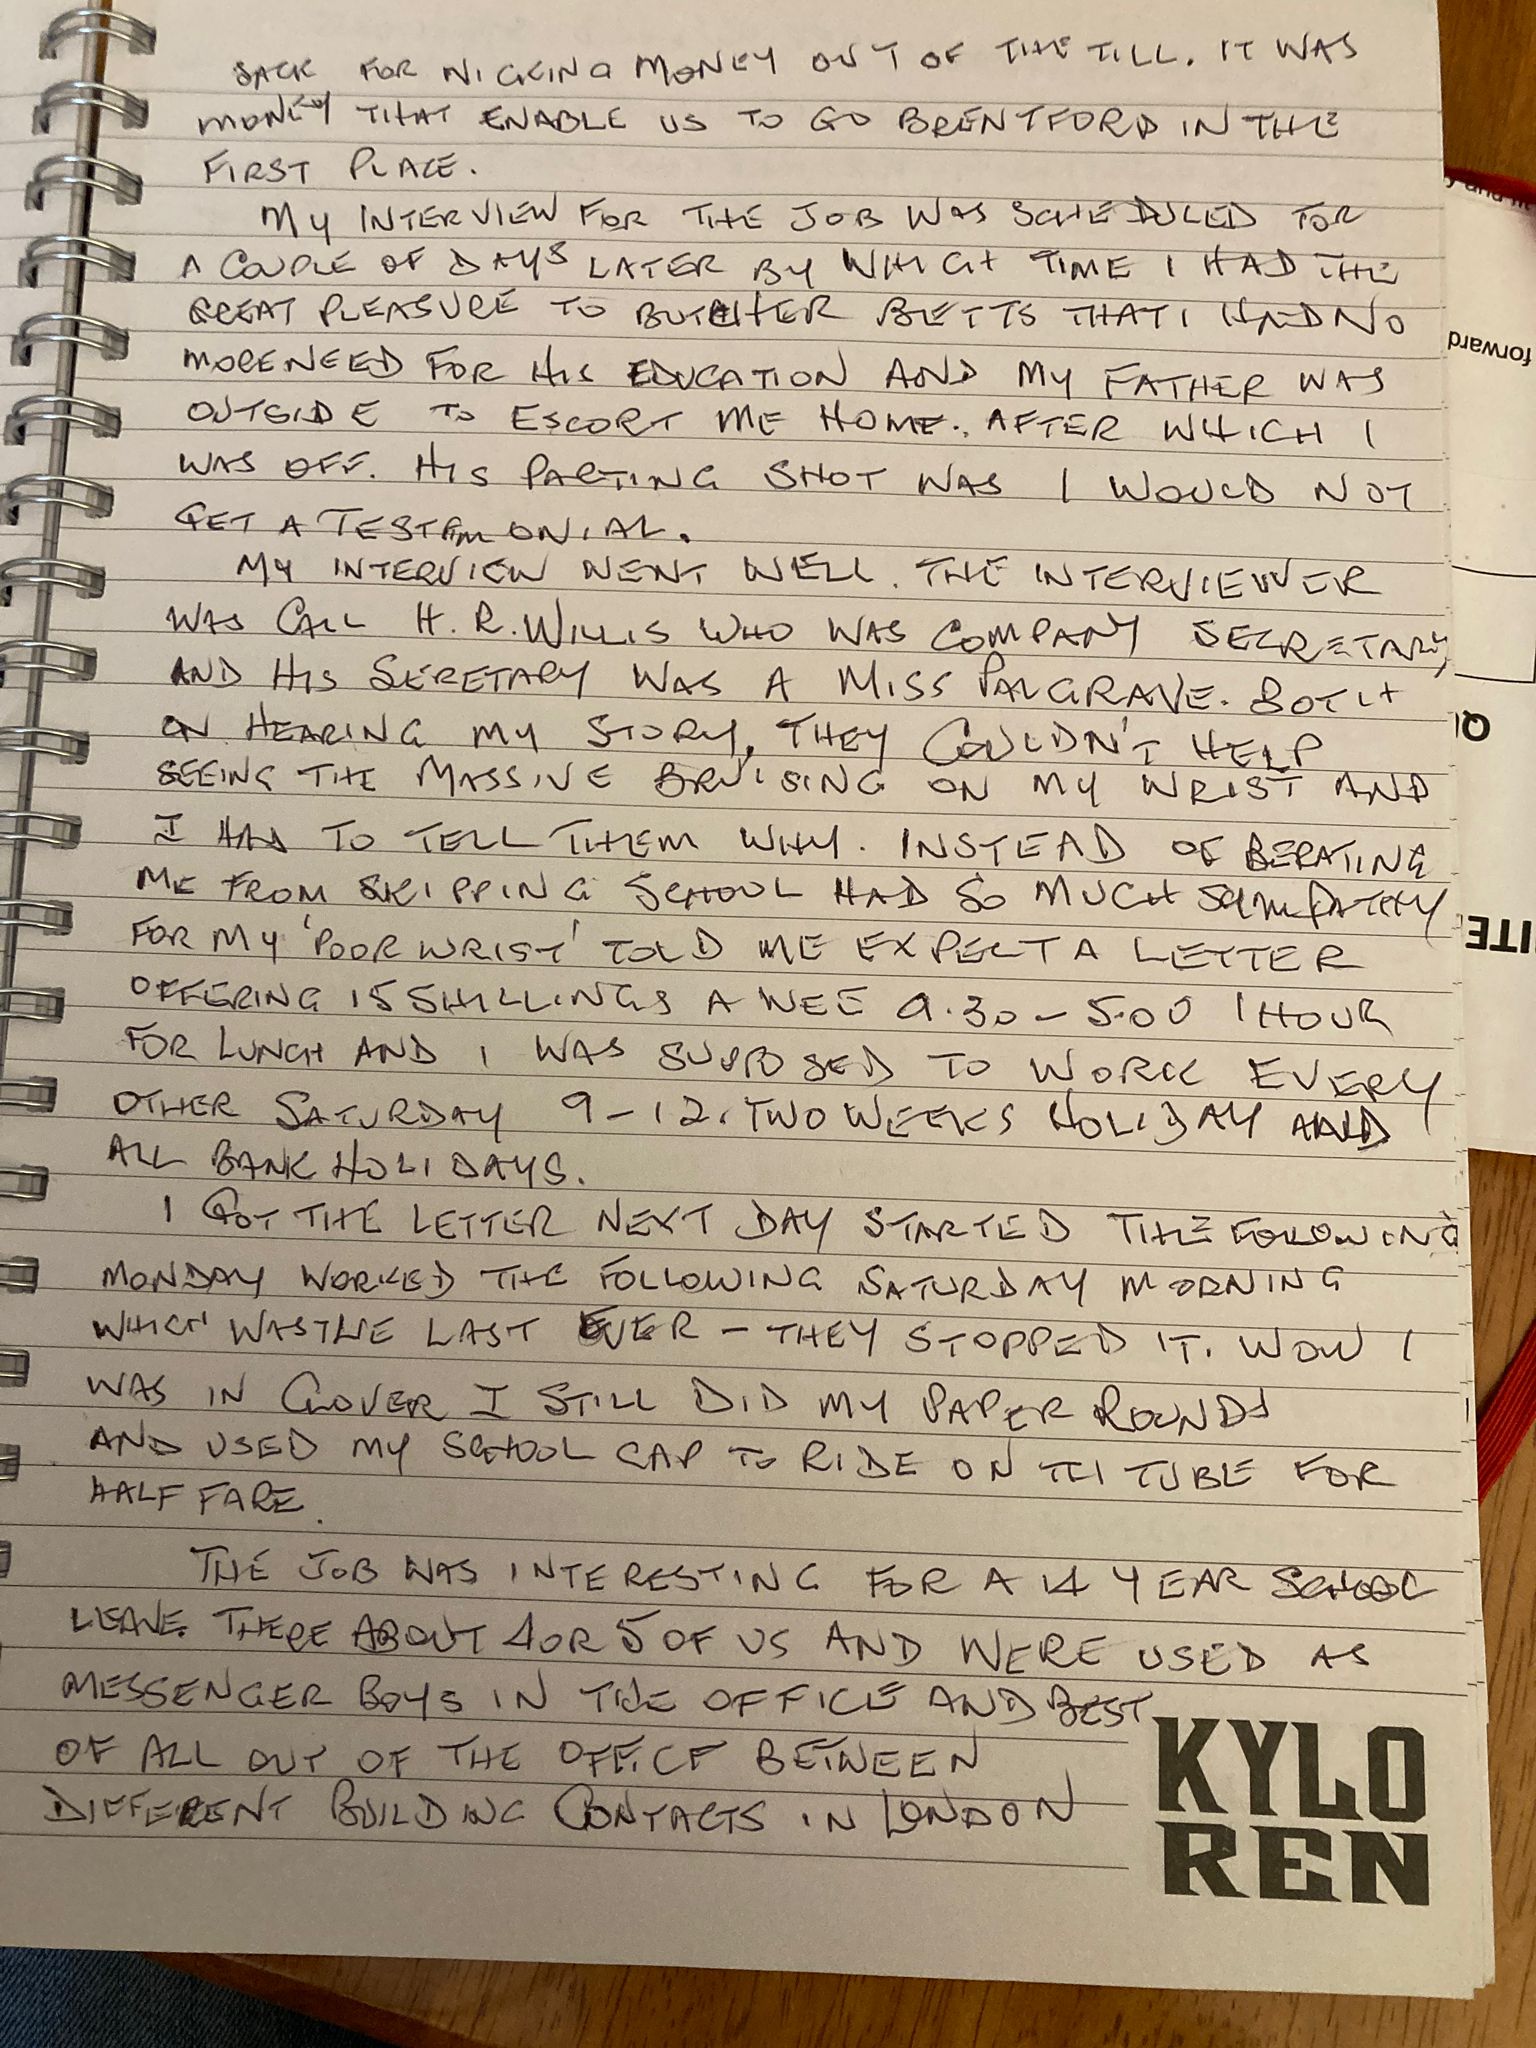 SACK FOR NICKING MONEY OUT OF THE TILL. IT WAS
MONEY THAT ENABLE US TO GO BRENTFORD IN THE
FIRST PLACE.
MY INTERVIEW FOR THE JOB WAS SCHEDULED FOR
A COUPLE OF DAYS LATER BY WHICH TIME I HAD THE
GREAT PLEASURE TO BUTCHER BETTS THAT I HAD NO
MORE NEED FOR HIS EDUCATION AND MY FATHER WAS
OUTSIDE TO ESCORT ME HOME. AFTER WHICH I
WAS OFF. HIS PARTING SHOT WAS I WOULD NOT
GET A TESTAMONIAL.
MY INTERVIEW WENT WELL. THE INTERVIEWER
WAS CALL H. R. WILLIS WHO WAS COMPANY SECRETARY,
AND HIS SERETARY WAS A MISS PALGRAVE. BOTH
ON HEARING MY STORY, THEY COULDN'T HELP
SEEING THE MASSIVE BRUISING ON MY WRIST AND
I HAD TO TELL THEM WHY. INSTEAD OF BERATING
ME FROM SKIPPING SCHOOL HAD SO MUCH SYMPATHY
FOR MY 'POOR WRIST' TOLD ME EXPECT A LETTER
OFFERING 15 SHILLINGS A WEE 9.30 - 5.00 1 HOUR
FOR LUNCH AND I WAS SUPPOSED TO WORK EVERY
OTHER SATURDAY 9-12. TWO WEEKS HOLIDAY AND
ALL BANK HOLIDAYS.
I GOT THE LETTER NEXT DAY STARTED THE FOLLOWING
MONDAY WORKED THE FOLLOWING SATURDAY MORNING
WHICH WAS THE LAST EVER - THEY STOPPED IT. WOW I
WAS IN CLOVER I STILL DID MY PAPER ROUNDS
AND USED MY SCHOOL CAP TO RIDE ON TH TUBE FOR
HALF FARE.
THE JOB WAS INTERESTING FOR A 14 YEAR SCHOOL
LEAVE. THERE ABOUT 4 OR 5 OF US AND WERE USED AS
MESSENGER BOYS IN THE OFFICE AND BEST
OF ALL OUT OF THE OFFICE BETWEEN
DIFFERENT BUILDING CONTACTS IN LONDON
KYLO
REN
forward